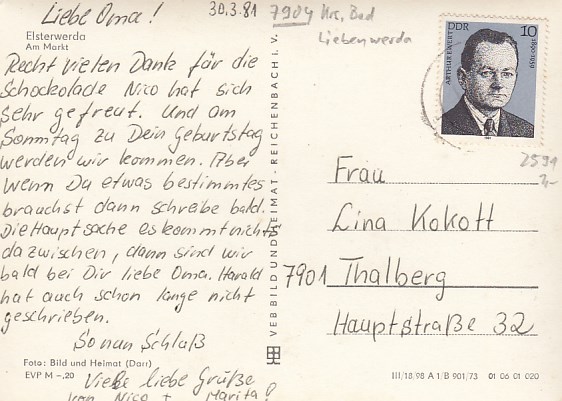 Liebe Oma!
30.3.81
7904 Krs. Bad
Liebenwerda
Elsterwerda
Am Markt
Recht vielen Dank für die
Schockolade Nico hat sich
sehr gefreut. Und am
Sonntag zu Dein Geburtstag
werden wir kommen. Aber
wenn Du etwas bestimmtes
brauchst dann schreibe bald.
Die Hauptsache es kommt nichts
dazwischen, dann sind wir
bald bei Dir liebe Oma. Harald
hat auch schon lange nicht
geschrieben.
So nun Schluß
Foto: Bild und Heimat (Darr)
EVP M -,20
Viele liebe Grüße
von Nico + Marita!
VEB BILD UND HEIMAT · REICHENBACH I. V.
DDR 10
ARTHUR EWERT 1890-1959
1981
2591
Frau
Lina Kokott
7901 Thalberg
Hauptstraße 32
III/18/98 A 1/B 901/73 01 06 01 020